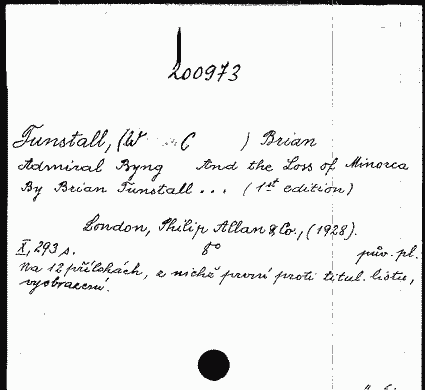 200973
Tunstall, (W C ) Brian
Admiral Byng And the Loss of Minorca
By Brian Tunstall ... (1st edition)
London, Philip Allan & Co., (1928).
X, 293 s. 8° pův. pl.
Na 12 přílohách, z nichž první proti titul. listu,
vyobrazení.